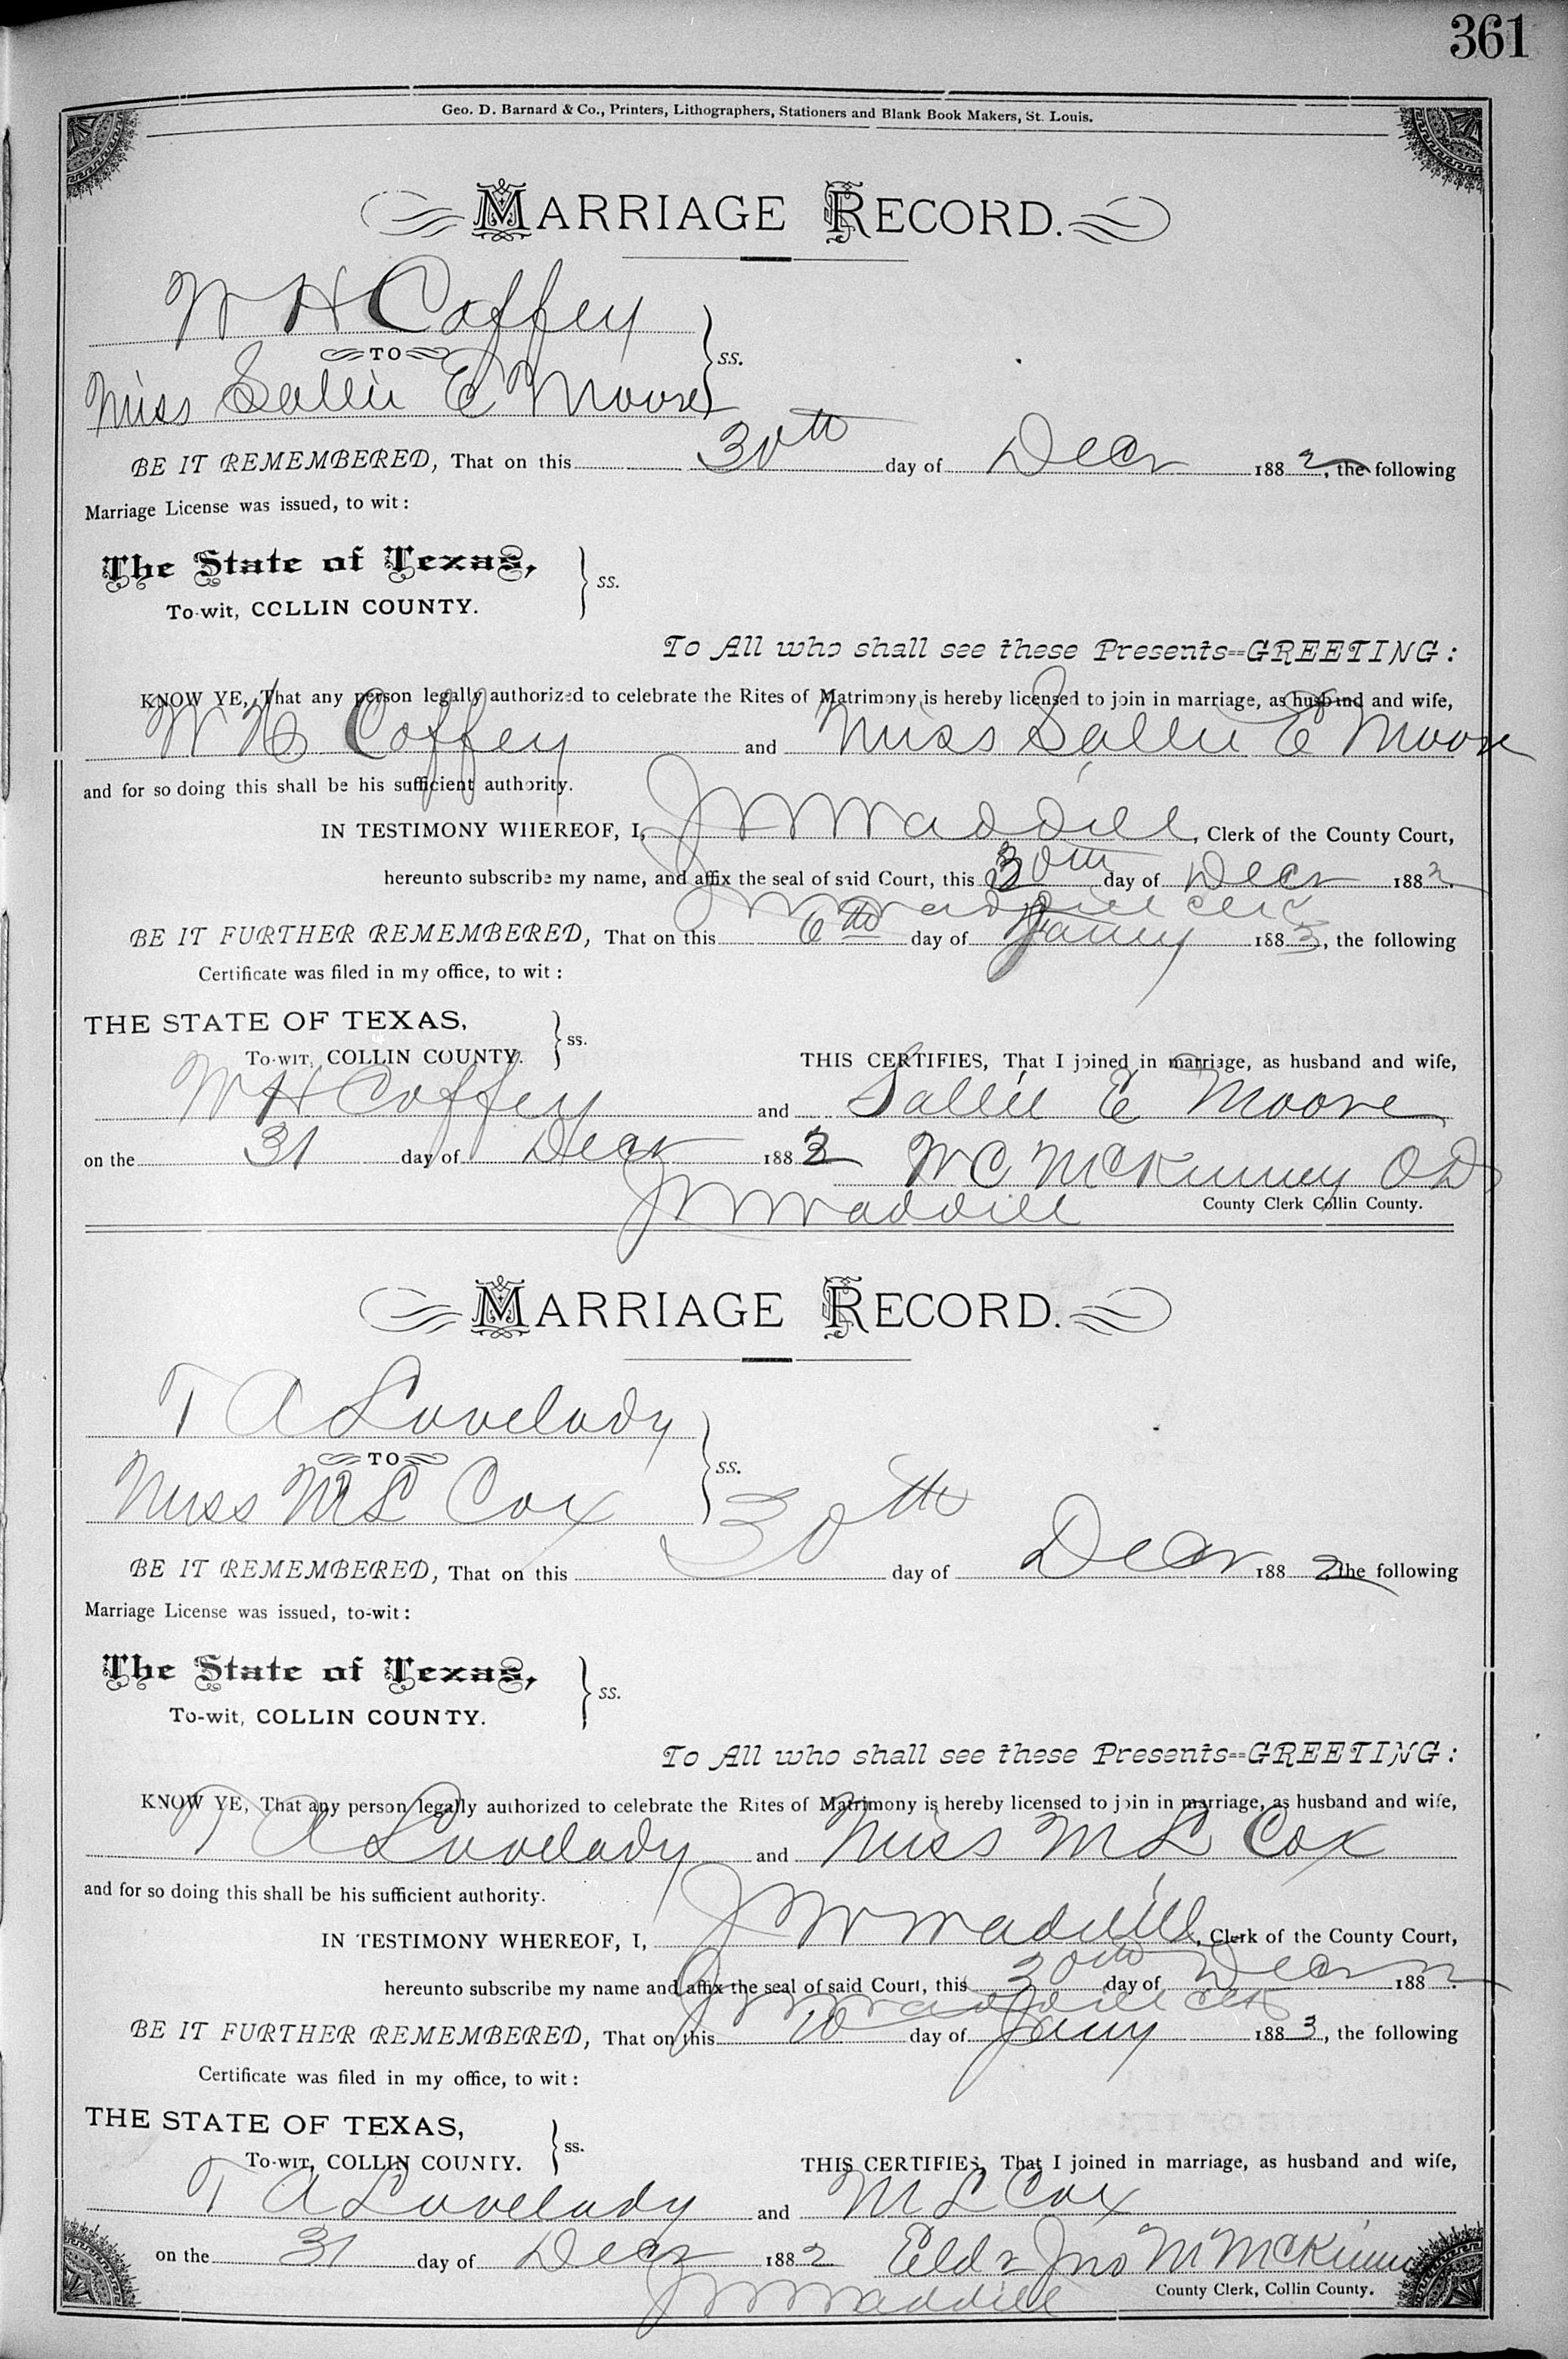 361
Geo. D. Barnard & Co., Printers, Lithographers, Stationers and Blank Book Makers, St. Louis.
MARRIAGE RECORD.
W H Coffey
TO
ss.
Miss Sallie E Moore
BE IT REMEMBERED, That on this 30th day of Decr 1882, the following
Marriage License was issued, to wit:
The State of Texas,
ss.
To-wit, COLLIN COUNTY.
To All who shall see these Presents--GREETING:
KNOW YE, That any person legally authorized to celebrate the Rites of Matrimony is hereby licensed to join in marriage, as husband and wife,
W H Coffey and Miss Sallie E Moore
and for so doing this shall be his sufficient authority.
IN TESTIMONY WHEREOF, I, J M Waddill, Clerk of the County Court,
hereunto subscribe my name, and affix the seal of said Court, this 30th day of Decr 1882.
J M Waddill Clk
BE IT FURTHER REMEMBERED, That on this 6th day of Jany 1883, the following
Certificate was filed in my office, to wit:
THE STATE OF TEXAS,
ss.
To-wit, COLLIN COUNTY.
THIS CERTIFIES, That I joined in marriage, as husband and wife,
W H Coffey and Sallie E Moore
on the 31 day of Decr 1882 W C McKinney
J M Waddill
County Clerk Collin County.
MARRIAGE RECORD.
T A Lovelady
TO
ss.
Miss M L Cox
BE IT REMEMBERED, That on this 30th day of Decr 1882, the following
Marriage License was issued, to-wit:
The State of Texas,
ss.
To-wit, COLLIN COUNTY.
To All who shall see these Presents--GREETING:
KNOW YE, That any person legally authorized to celebrate the Rites of Matrimony is hereby licensed to join in marriage, as husband and wife,
T A Lovelady and Miss M L Cox
and for so doing this shall be his sufficient authority.
IN TESTIMONY WHEREOF, I, J M Waddill, Clerk of the County Court,
hereunto subscribe my name and affix the seal of said Court, this 30th day of Decr 1882.
J M Waddill Clk
BE IT FURTHER REMEMBERED, That on this 10 day of Jany 1883, the following
Certificate was filed in my office, to wit:
THE STATE OF TEXAS,
ss.
To-wit, COLLIN COUNTY.
THIS CERTIFIES, That I joined in marriage, as husband and wife,
T A Lovelady and M L Cox
on the 31 day of Decr 1882 Eldr Jno M McKinney
J M Waddill
County Clerk, Collin County.